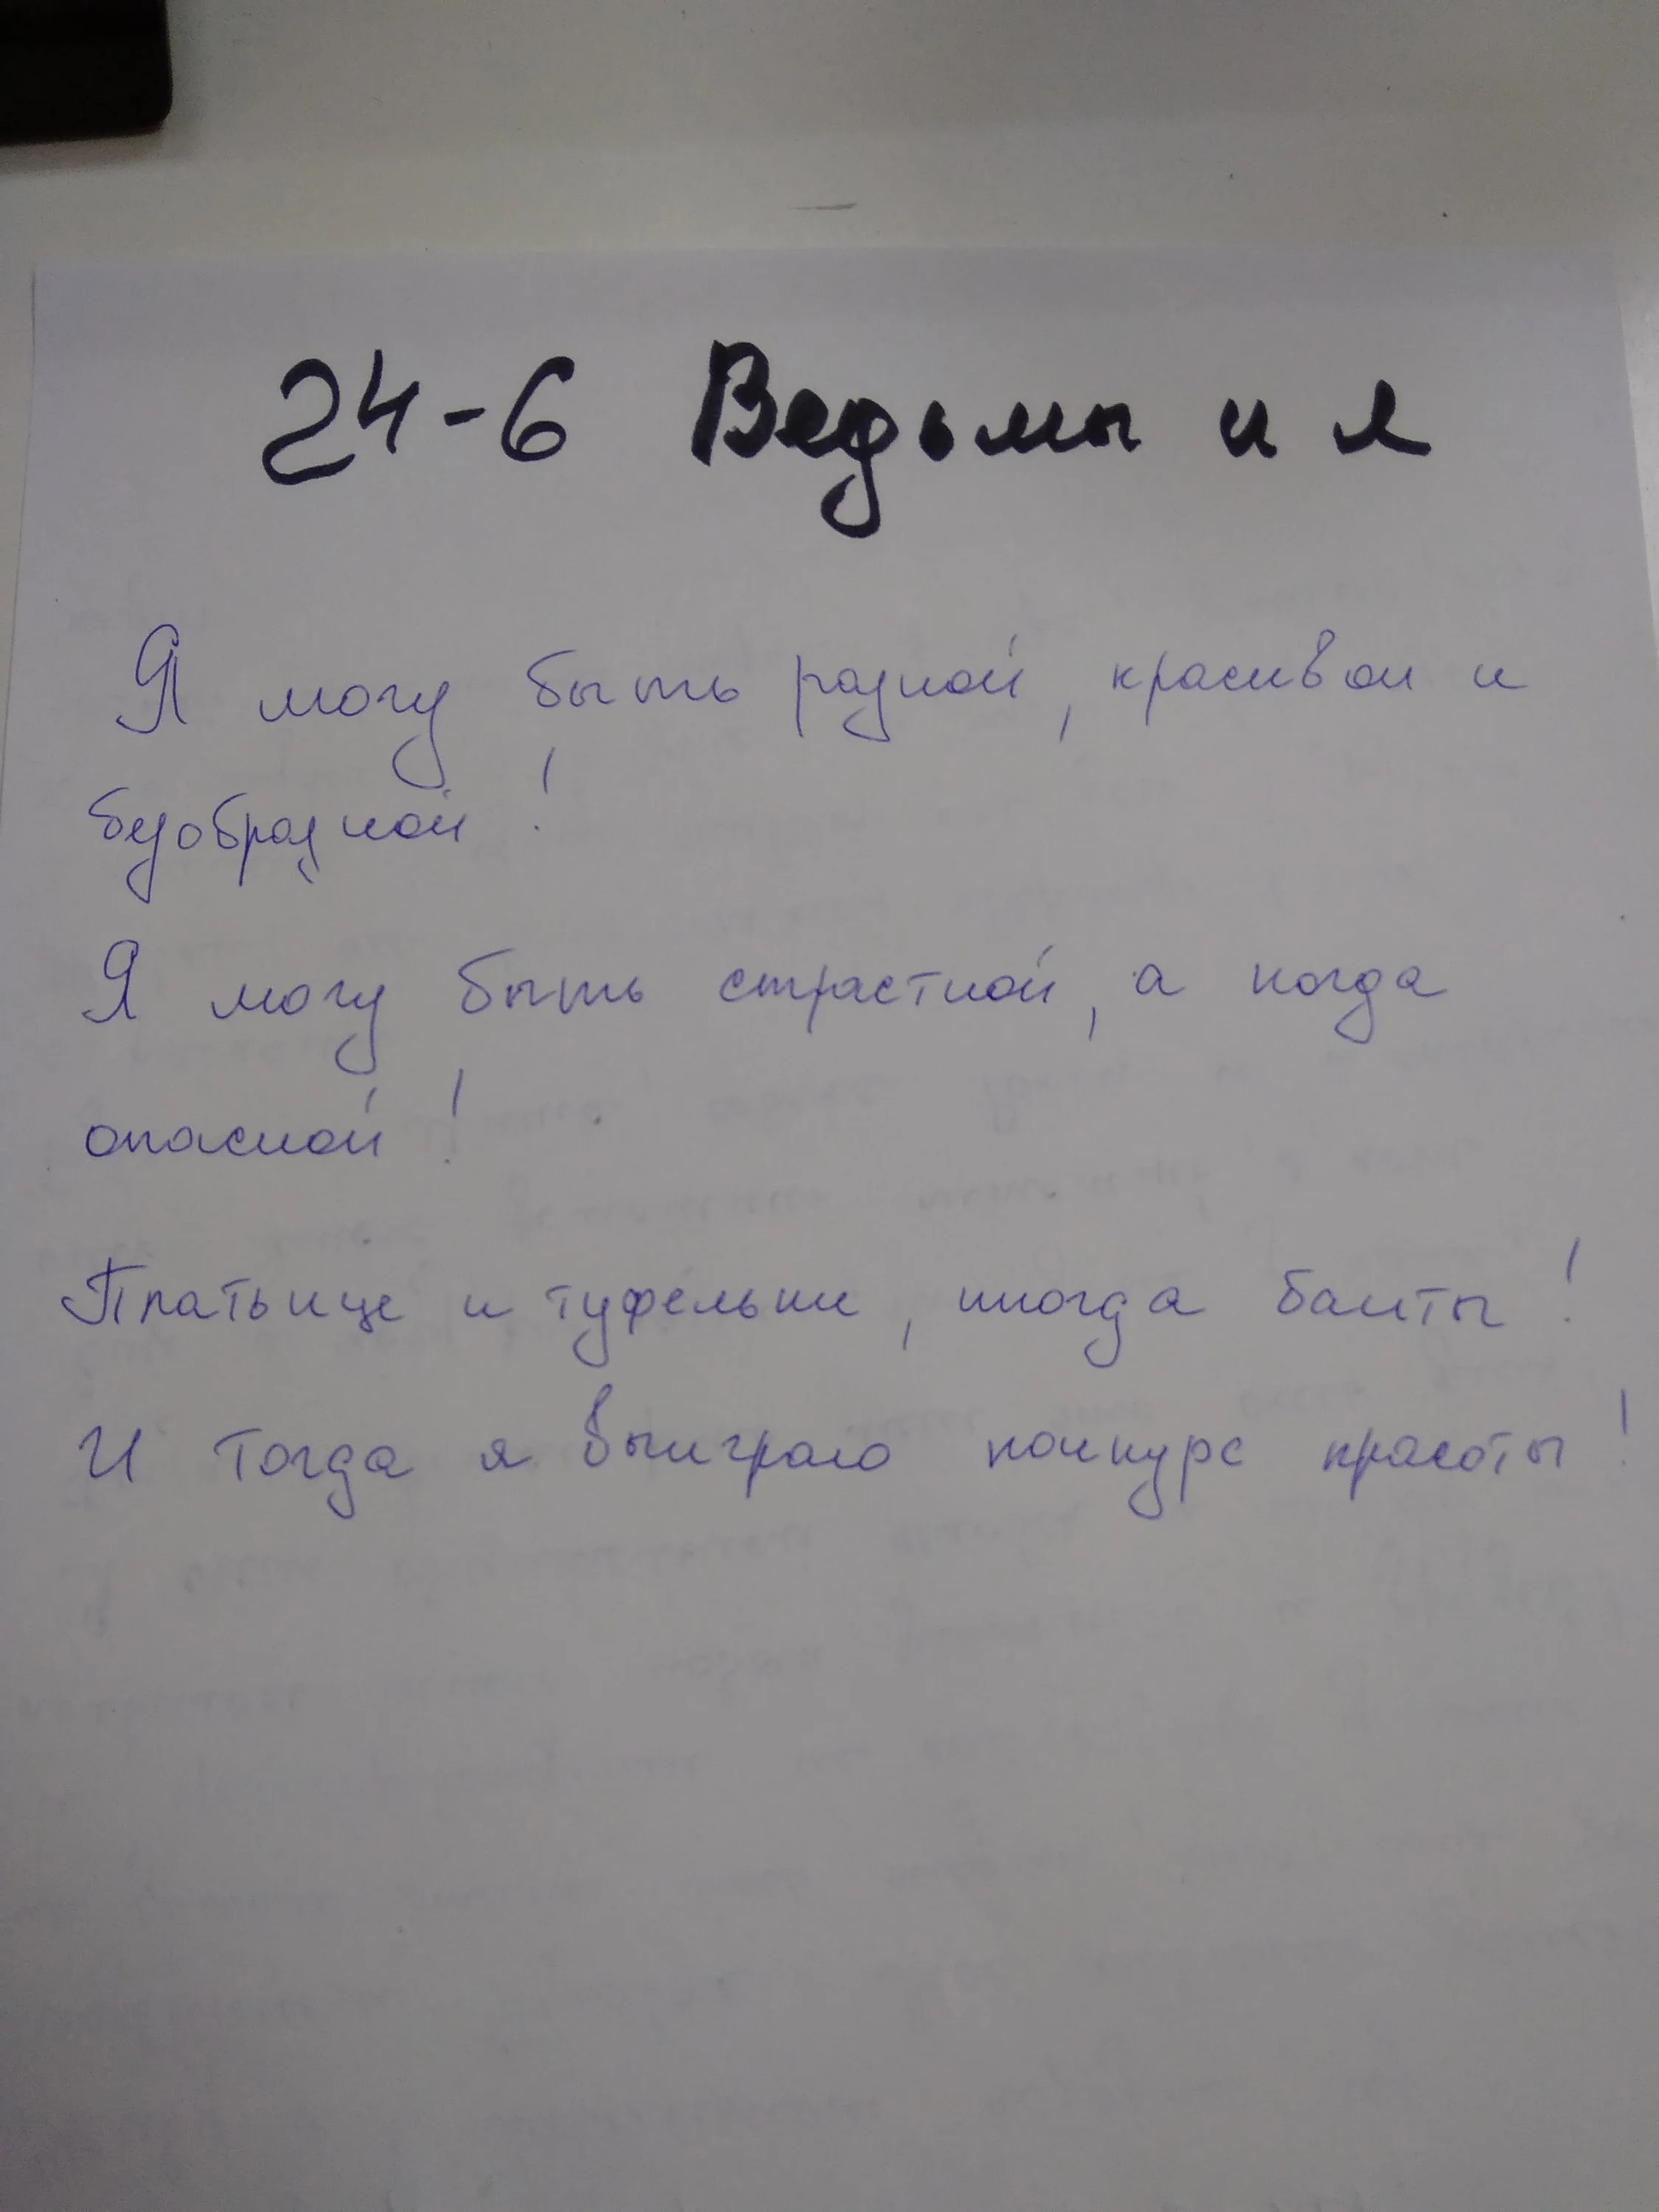 24-6 Ведьмы и я
Я могу быть разной, красивой и
безобразной!
Я могу быть страстной, а когда
опасной!
Платьице и туфельки, иногда банты!
И тогда я выиграю конкурс красоты!